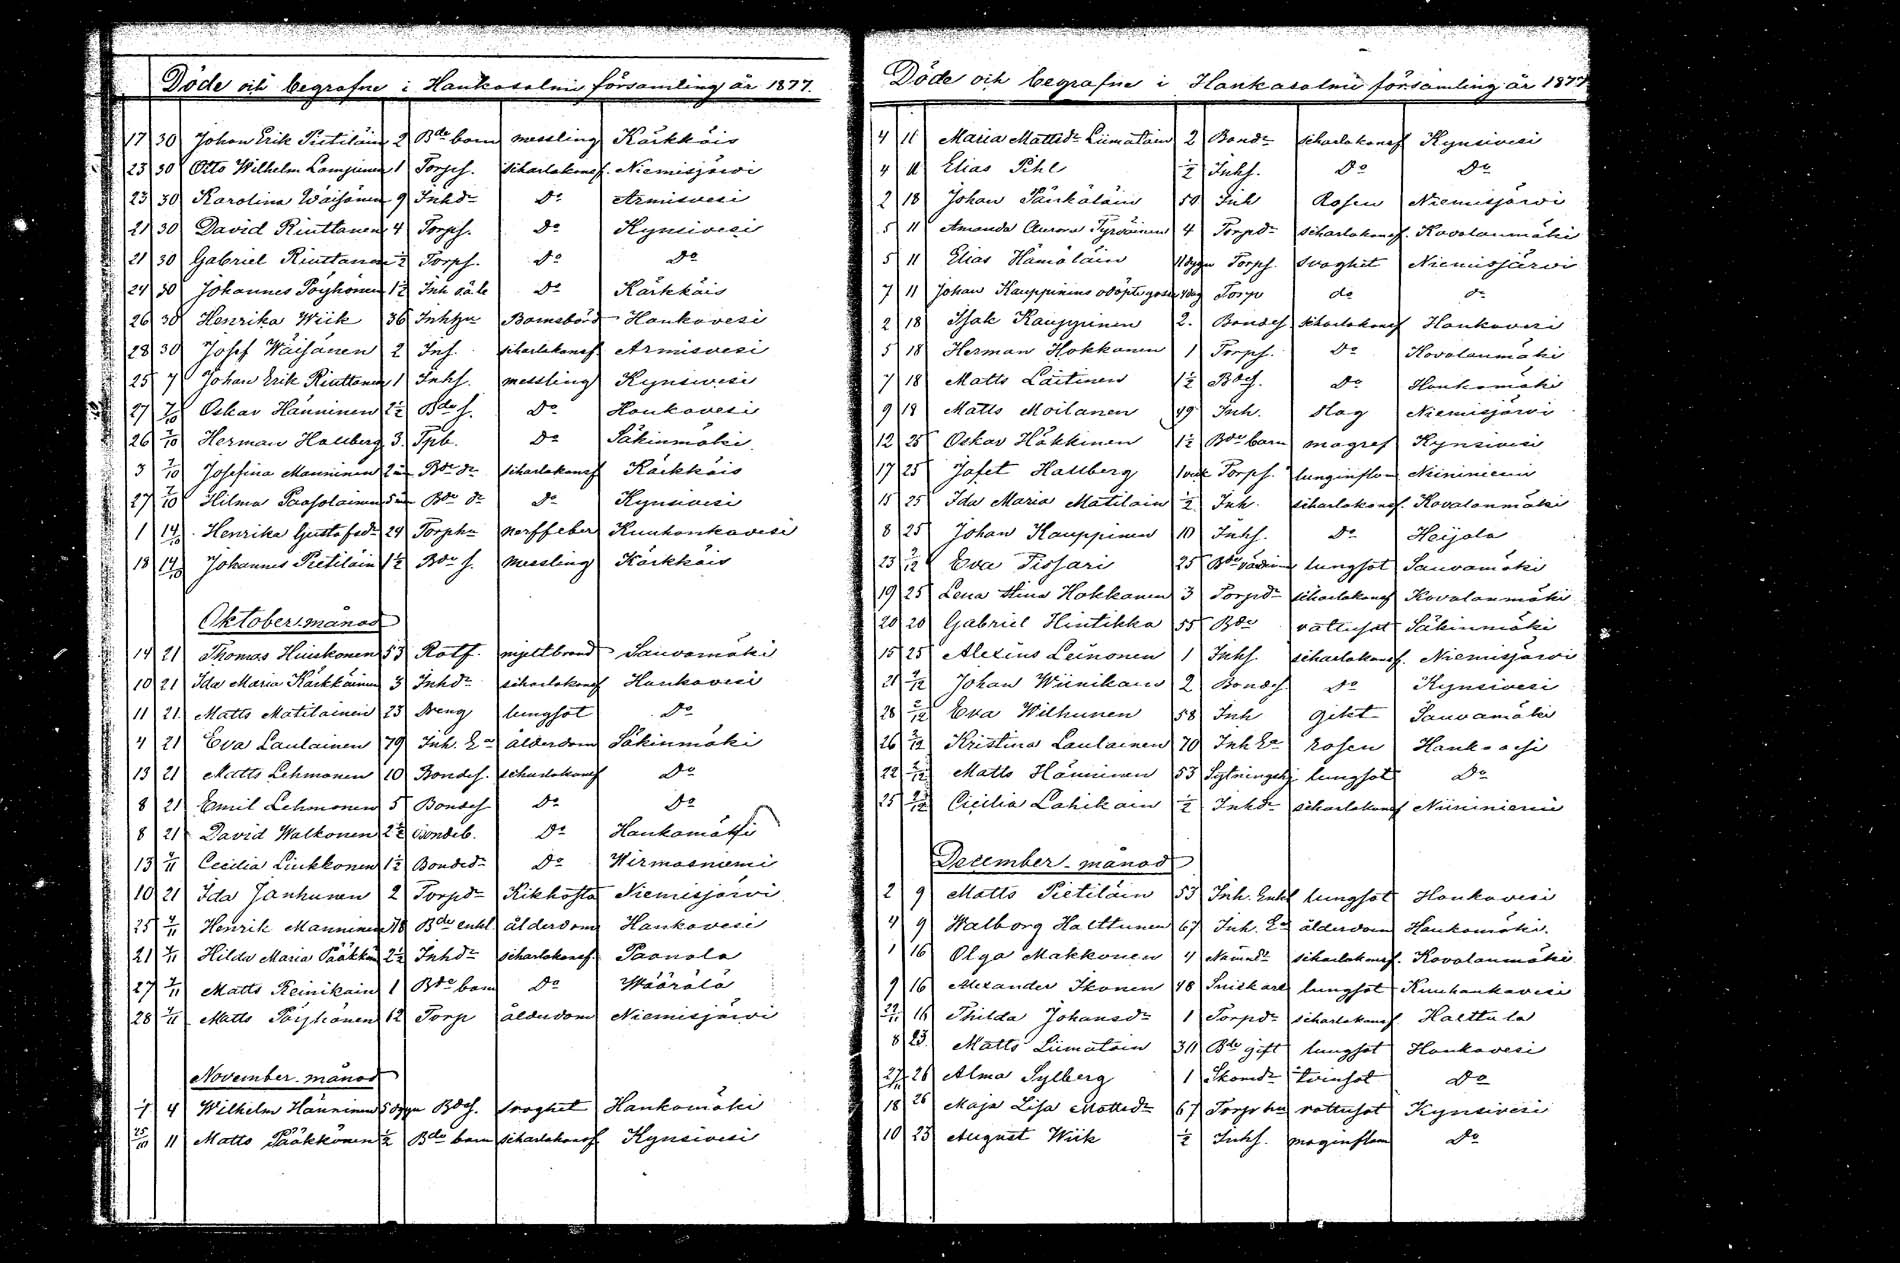 Döde och begrafne i Hankasalmi församling år 1877.
17 30 Johan Erik Pietiläin 2 Bde barn messling Kärkkäis
23 30 Otto Wilhelm Lampinen 1 Torps. scharlakansf. Niemisjärvi
23 30 Karolina Wäisänen 9 Inhdr Do Armisvesi
21 30 David Riuttanen 4 Torps. Do Kynsivesi
21 30 Gabriel Riuttanen ½ Torps. Do Do
24 30 Johannes Pöyhönen 1½ Inh Do Kärkkäis
26 30 Henrika Wiik 36 Barnsbörd Hankavesi
28 30 Josef Wäisänen 2 Ins. scharlakansf. Armisvesi
25 7 Johan Erik Riuttanen 1 Inhs. messling Kynsivesi
27 7/10 Oskar Hänninen 2½ Bde s. Do Hankavesi
26 7/10 Herman Hallberg 3. Tpb. Do Säkinmäki
3 7/10 Josefina Manninen 2 Bde dr scharlakansf Kärkkäis
27 7/10 Hilma Paasolainen 5 Bde dr Do Kynsivesi
1 14/10 Henrika Gustafsdr 24 Torphu nerffeber Kuuhankavesi
18 14/10 Johannes Pietiläin 1½ Bde s. messling Kärkkäis
Oktober månad
14 21 Thomas Hiuskonen 53 Rotf. mjeltbrand Sauvamäki
10 21 Ida Maria Kärkkäinen 3 Inhdr scharlakansf Hankavesi
11 21 Matts Matilainen 23 Dreng lungsot Do
4 21 Eva Laulainen 79 Inh. Ea ålderdom Säkinmäki
13 21 Matts Lehmonen 10 Bondes. scharlakansf Do
8 21 Emil Lehmonen 5 Bondes Do Do
8 21 David Walkonen 2½ Bondeb. Do Hankamäki
13 4/11 Cecilia Liukkonen 1½ Bondedr Do Wirmasniemi
10 21 Ida Janhunen 2 Torpdr Kikhosta Niemisjärvi
25 4/11 Henrik Manninen 78 Bde enkl. ålderdom Hankavesi
21 4/11 Hilda Maria Pääkkön 2½ Inhdr scharlakansf. Paanala
27 4/11 Matts Reinikain 1 Bde barn Do Wäärälä
28 4/11 Matts Pöyhönen 12 Torp ålderdom Niemisjärvi
November månad
4 Wilhelm Hänninen 5 dygn Bdes. svaghet Hankamäki
25/10 11 Matts Pääkkönen ½ Bde barn scharlakansf Kynsivesi
Döde och begrafne i Hankasalmi församling år 1877
4 11 Maria Mattsdr Liimatain 2 Bondr scharlakansf Kynsivesi
4 11 Elias Pihl ½ Inhs. Do Do
2 18 Johan Pänkäläin 50 Inh Rosen Niemisjärvi
5 11 Amanda Aurora Tyrväinen 4 Torpdr scharlakansf. Kovalanmäki
5 11 Elias Hämäläin 11 dygn Torps. svaghet Niemisjärvi
7 11 Johan Kauppinens odöpte gosse Torp do do
2 18 Isak Kauppinen 2. Bondes. scharlakansf Hankavesi
5 18 Herman Hokkanen 1 Torps. Do Kovalanmäki
7 18 Matts Laitinen 1½ Bdes. Do Hankamäki
9 18 Matts Moilanen 49 Inh. slag Niemisjärvi
12 25 Oskar Häkkinen 1½ Bde barn magref Kynsivesi
17 25 Jafet Hallberg Torps. lunginflam Niininiemi
15 25 Ida Maria Matilain ½ Inh. scharlakansf. Kovalanmäki
8 25 Johan Kauppinen 10 Inhs. Do Heijala
23 2/12 Eva Tissari 25 Bde värdinna lungsot Sauvamäki
19 25 Lena Stina Hokkanen 3 Torpdr scharlakansf Kovalanmäki
20 20 Gabriel Hintikka 55 Bde vattusot Säkinmäki
15 25 Alexius Leinonen 1 Inhs. scharlakansf. Niemisjärvi
21 2/12 Johan Wiinikain 2 Bondes. Do Kynsivesi
28 2/12 Eva Wilhunen 58 Inh gikt Sauvamäki
26 2/12 Kristina Laulainen 70 Inh Ea rosen Hankavesi
22 2/12 Matts Hänninen 53 Sytningshj lungsot Do
25 2/12 Cicilia Lahikain ½ Inhdr scharlakansf Niininiemi
December månad
2 9 Matts Pietiläin 53 Inh. Enkl lungsot Hankavesi
4 9 Walborg Halttunen 67 Inh. Ea ålderdom Hankamäki.
1 16 Olga Makkonen 4 scharlakansf. Kovalanmäki
9 16 Alexander Ikonen 48 lungsot Kuuhankavesi
22/11 16 Thilda Johansdr 1 Torpdr scharlakansf. Halttula
8 23. Matts Liimatain 311 Bde gift lungsot Hankavesi
27/11 26 Alma Sylberg 1 Skomdr tvinsot Do
18 26 Maja Lisa Mattsdr 67 Torp hu vattusot Kynsivesi
10 23 August Wiik ½ Inhs. maginflam Do